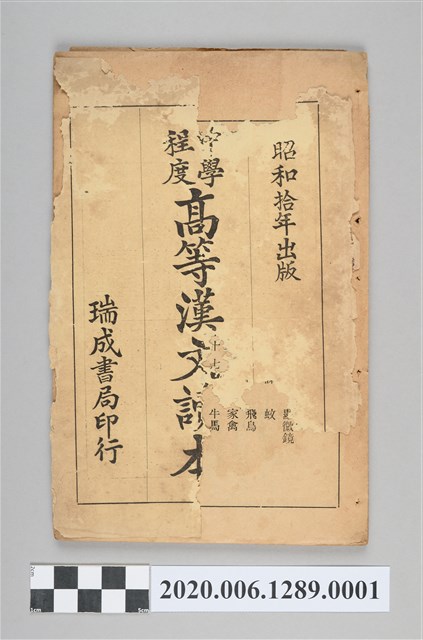 昭和拾年出版
中學
程度
高等漢文讀本
瑞成書局印行
十七
微鏡
蚊
飛鳥
家禽
牛馬
1cm
5cm
2020.006.1289.0001